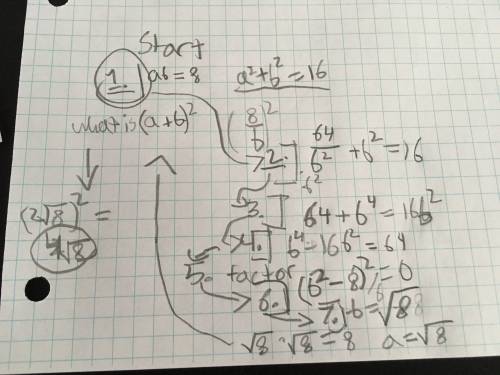 Start
1. ab = 8 a² + b² = 16
what is (a+b)²
(8/b)²
2.] 64/b² + b² = 16
b²
3.] 64 + b⁴ = 16b²
4.] b⁴ - 16b² = 64
5. factor
6.] (b² - 8)² = 0
7.) b = √8
√8 · √8 = 8 a = √8
(2√8)² =
4√8